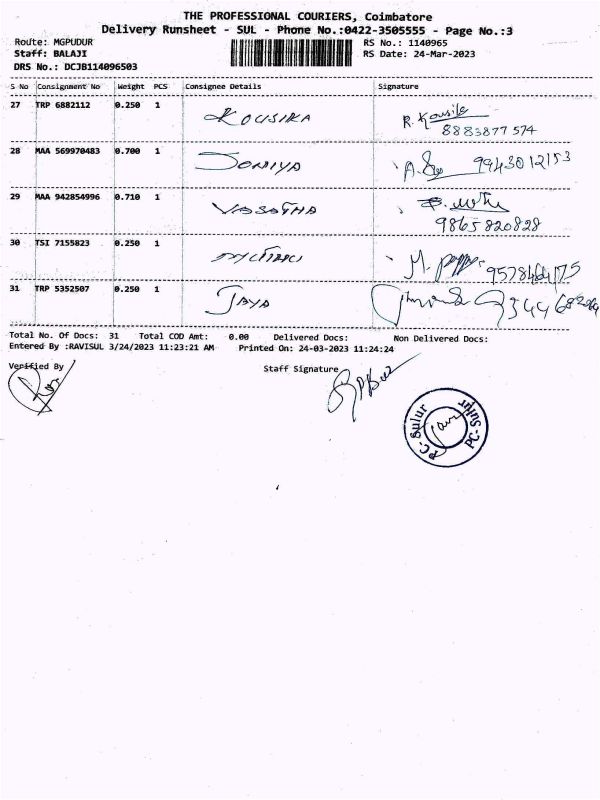 THE PROFESSIONAL COURIERS, Coimbatore
Delivery Runsheet - SUL - Phone No.:0422-3505555 - Page No.:3
Route: MGPUDUR RS No.: 1140965
Staff: BALAJI RS Date: 24-Mar-2023
DRS No.: DCJB114096503
S No Consignment No Weight PCS Consignee Details Signature
27 TRP 6882112 0.250 1 KOUSIKA R. Kousika
8883877574
28 MAA 569970483 0.700 1 SONIYA 9943012153
29 MAA 942854996 0.710 1 VASATHA
9865820828
30 TSI 7155823 0.250 1 M.
31 TRP 5352507 0.250 1 JAYA
Total No. Of Docs: 31 Total COD Amt: 0.00 Delivered Docs: Non Delivered Docs:
Entered By :RAVISUL 3/24/2023 11:23:21 AM Printed On: 24-03-2023 11:24:24
Verified By Staff Signature
PC-Sulur
PC-Sulur